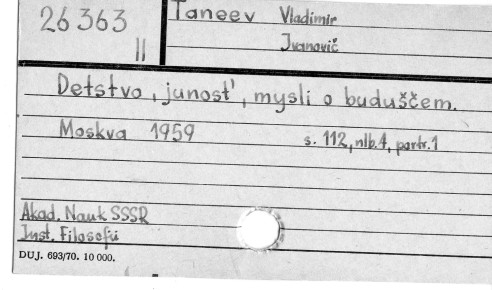 26363
II
Taneev Vladimir
Ivanovič
Detstvo, junost', mysli o buduščem.
Moskva 1959 s. 112, nlb. 4, portr. 1
Akad. Nauk SSSR
Inst. Filosofii
DUJ. 693/70. 10 000.